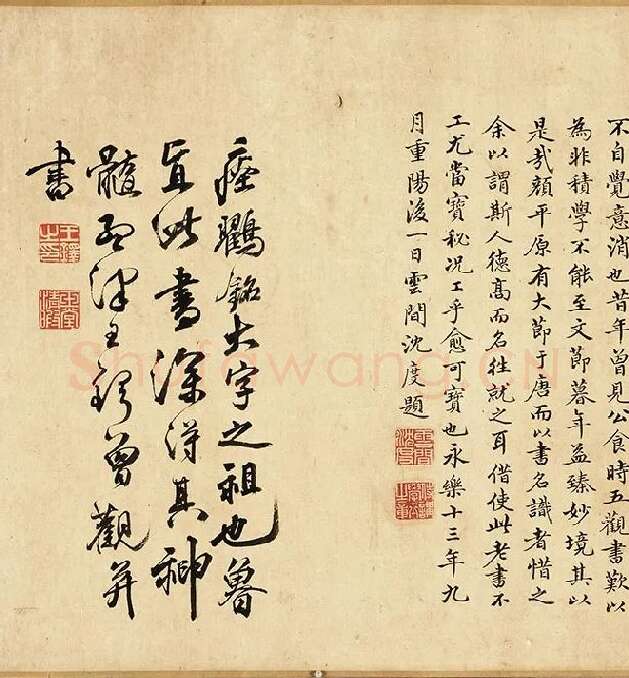 不自覺意消也昔年曾見公食時五觀書歎以
為非積學不能至文節暮年益臻妙境其以
是哉顔平原有大節于唐而以書名識者惜之
余以謂斯人德髙而名往就之耳借使此老書不
工尤當寶秘况工乎愈可寶也永樂十三年九
月重陽後一日雲間沈度題
瘞鸖銘大字之祖也魯
直此書深得其神
髓孟津王鐸曾觀并
書
王鐸之印
Shufawang.CN